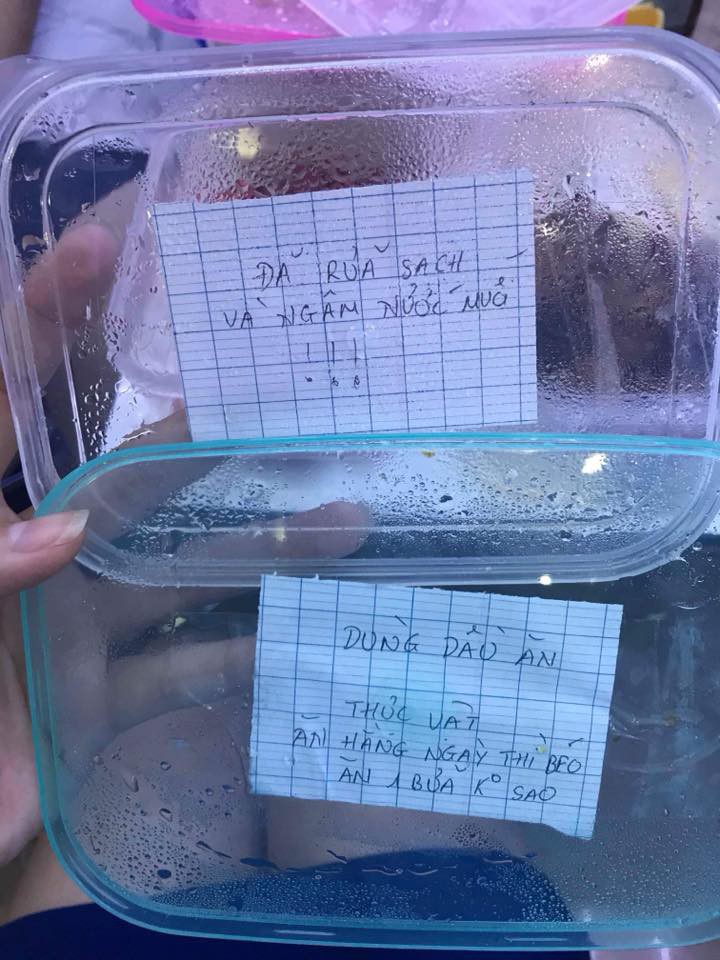 ĐÃ RỬA SẠCH
VÀ NGÂM NƯỚC MUỐI
!!!
DÙNG DẦU ĂN
THỰC VẬT
ĂN HẰNG NGÀY THÌ BÉO
ĂN 1 BỮA K° SAO